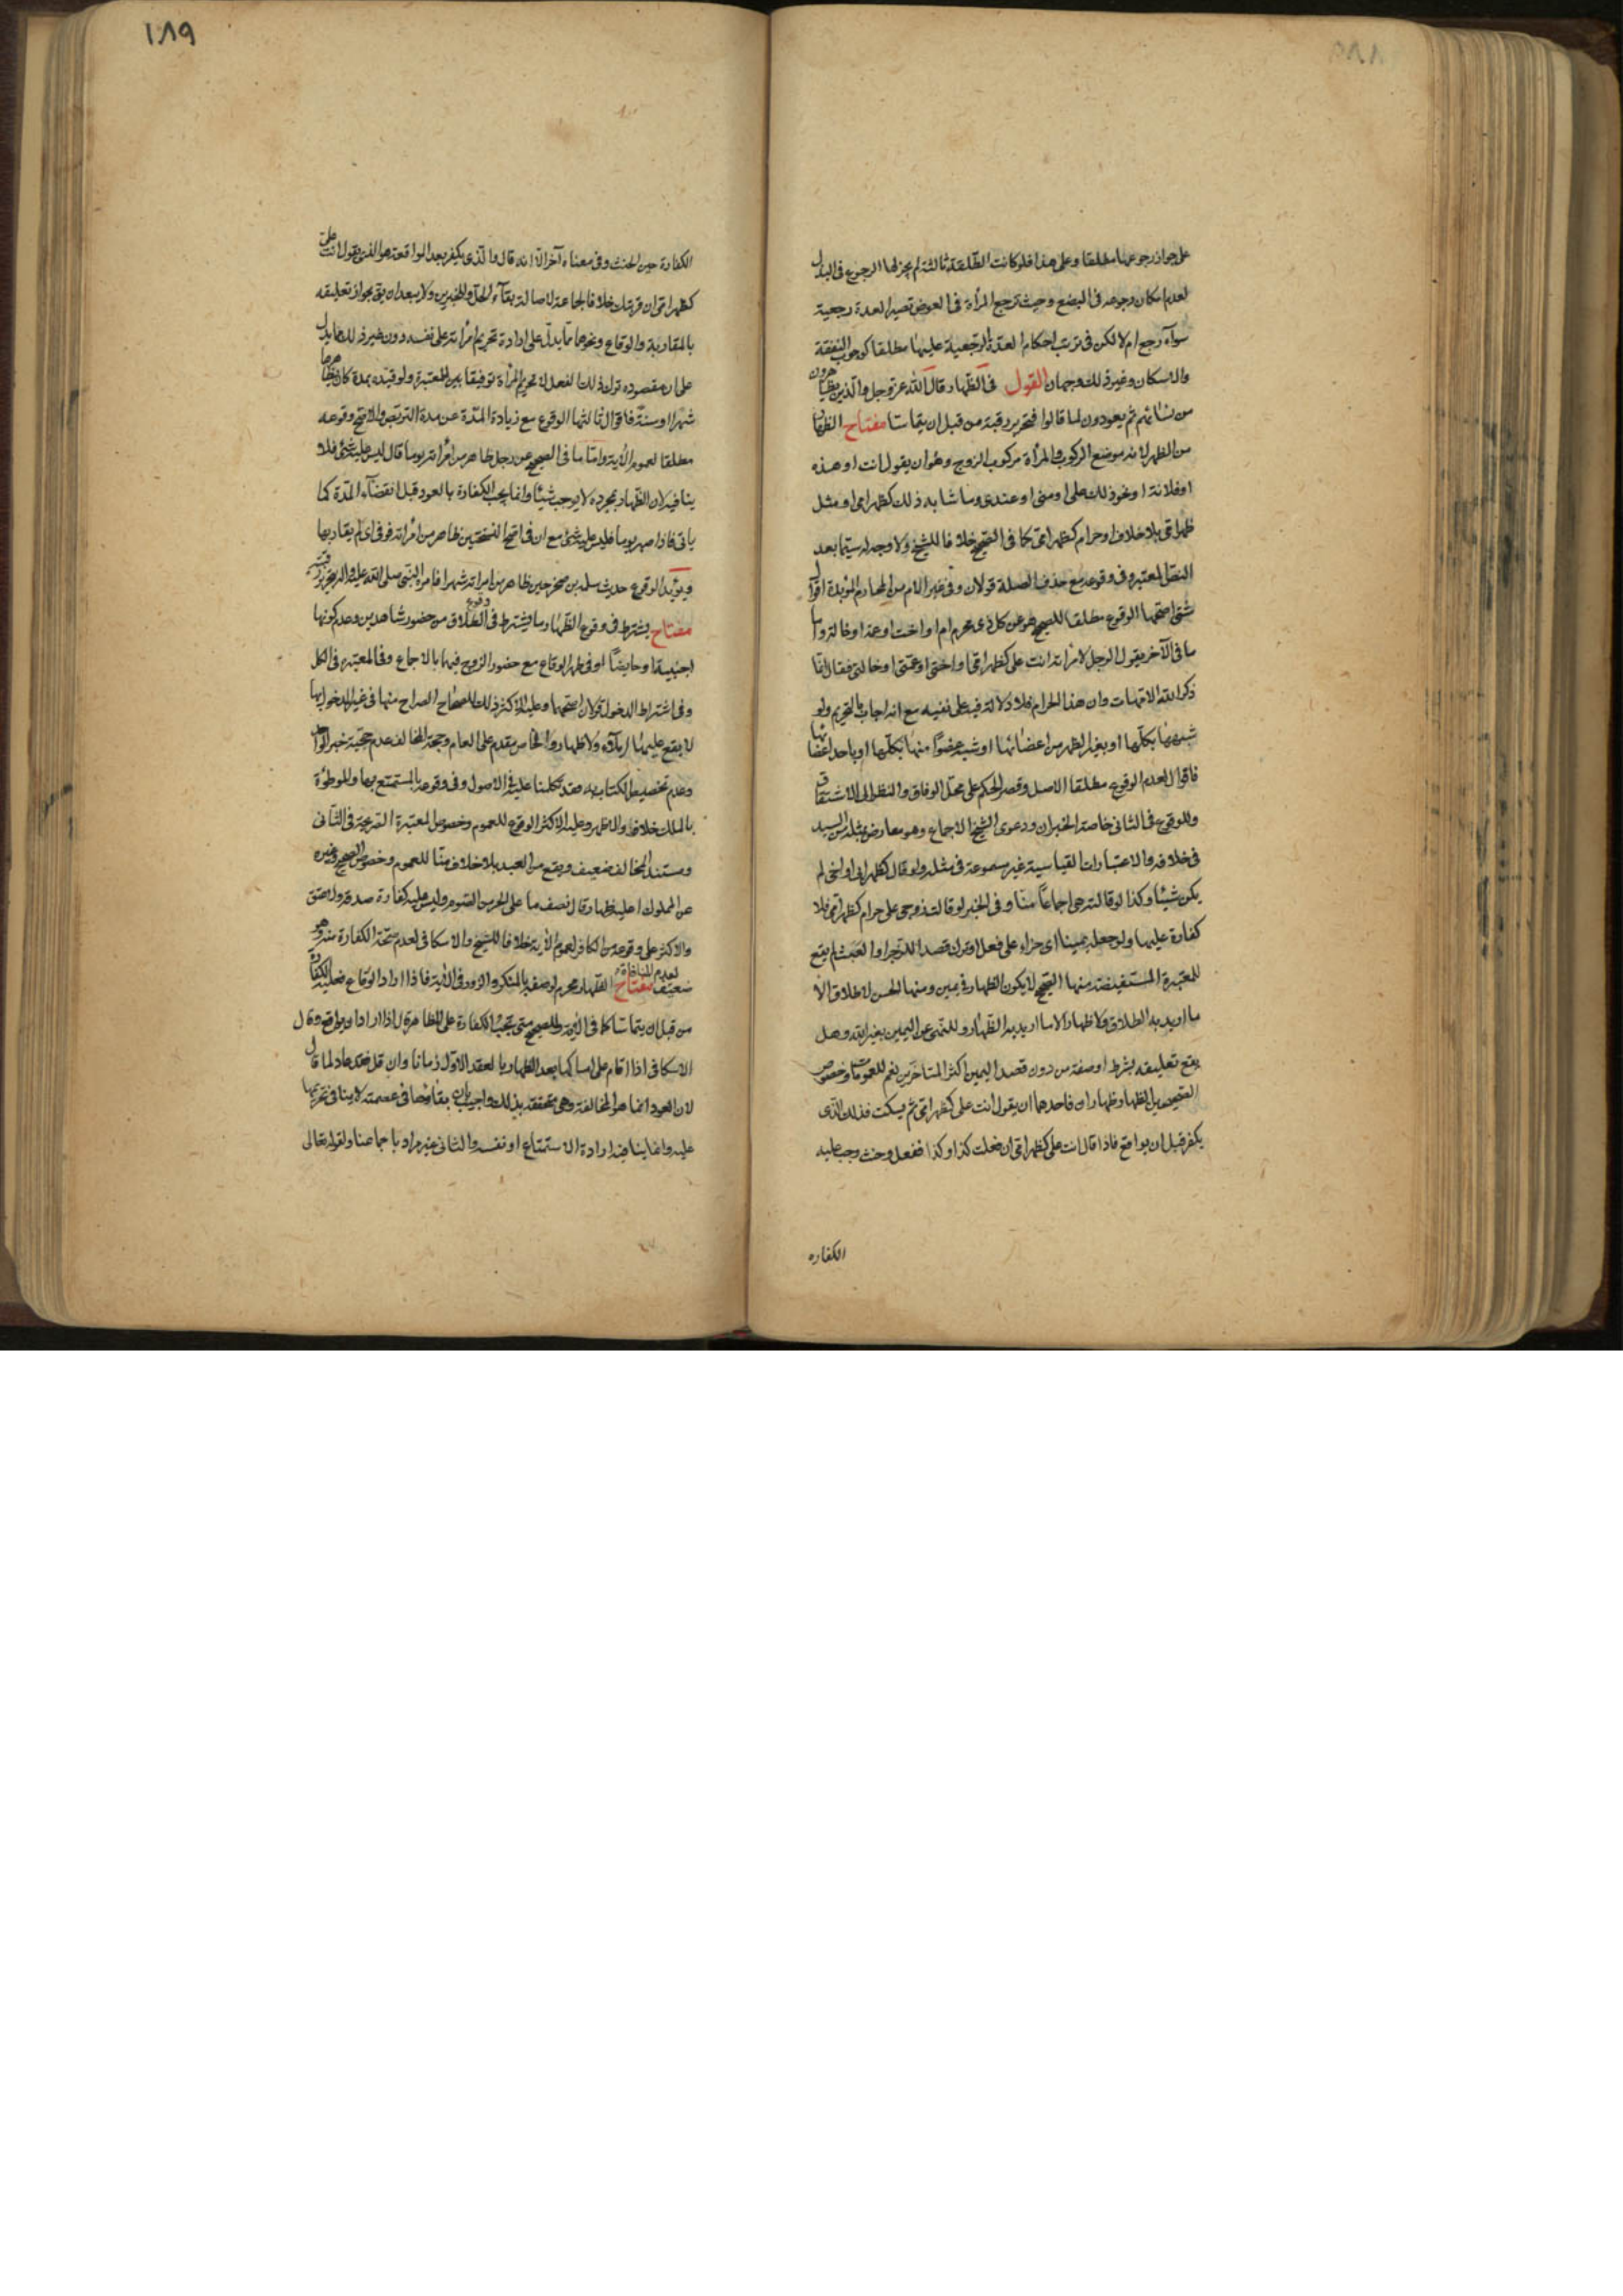 على جواز رجوعها مطلقا وعلى هذا فلو كانت الطلقة ثالثة لم يجز لها الرجوع في البذل
لعدم امكان رجوعه في البضع وحيث ترجع المرأة في العوض تصير العدة رجعية
سوآء رجع ام لا لكن في ترتب احكام العدة الرجعية عليها مطلقا كوجوب النفقة
والاسكان وغير ذلك وجهان القول في الظهار قال الله عز وجل والذين يظاهرون
من نسائهم ثم يعودون لما قالوا فتحرير رقبة من قبل ان يتماسا مفتاح الظهار
من الظهر لانه موضع الركوب والمرأة مركوب الزوج وهو ان يقول انت او هذه
او فلانة او نحو ذلك على او منى او عندى وما شابه ذلك كظهر امى او مثل
ظهر امى بلا خلاف او حرام كظهر امى كما في الصحيح خلافا للشيخ ولا وجه له سيما بعد
النص المعتبر وفى وقوعه مع حذف الصلة قولان وفى غير الام من المحارم المؤبدة اقوال
شتى اصحها الوقوع مطلقا للصحيح هو عن كل ذى محرم ام او اخت او عمة او خالة واما
ما في الآخر يقول الرجل لامرأته انت على كظهر امى او اختى او عمتى او خالتى فقال انما
ذكر الله الامهات وان هذا لحرام فلا دلالة فيه على نفيه مع انه اجاب بالتحريم ولو
شبهها بكلها او بغير الظهر من اعضائها او شبه عضوا منها بكلها او باحد اعضائها
فاقوال لعدم الوقوع مطلقا الاصل وقصر الحكم على محل الوفاق والنظر الى الاشتقاق
وللوقوع في الثانى خاصة الخبران ودعوى الشيخ الاجماع وهو معارض بمثله من السيد
في خلافه والاعتبارات القياسية غير مسموعة في مثله ولو قال كظهر ابى او اخى لم
يكن شيئا وكذا لو قالته هى اجماعا منا وفى الخبر لو قالت زوجى على حرام كظهر امى فلا
كفارة عليها ولو جعله يمينا اى جزاء على فعل او ترك قصدا للزجر او البعث لم يقع
للمعتبرة المستفيضة منها الصحيح لا يكون الظهار في يمين ومنها الحسن لا طلاق الا
ما اريد به الطلاق ولا ظهار الا ما اريد به الظهار وللنهى عن اليمين بغير الله وهل
يقع تعليقه بشرط او صفة من دون قصد اليمين اكثر المتاخرين نعم للعمومات وخصوص
الصحيح بل الظهار ظهاران فاحدهما ان يقول انت على كظهر امى ثم يسكت فذلك الذى
يكفر قبل ان يواقع فاذا قال انت على كظهر امى ان فعلت كذا وكذا ففعل وحنث وجب عليه
الكفاره
١٨٩
الكفارة حين الحنث وفى معناه آخر الا انه قال والذى يكفر بعد المواقعة هو الذى يقول انت على
كظهر امى ان قربتك خلافا لجماعة لاصالة بقآء الحل وللخبرين ولا يبعد ان يق بجواز تعليقه
بالمقاربة والوقاع ونحوهما مما يدل على ارادة تحريم امرأته على نفسه دون غير ذلك مما يدل
على ان مقصوده ترك ذلك الفعل لا تحريم المرأة توفيقا بين المعتبرة ولو قيده بمدة كان يظاهرها
شهرا او سنة فاقوال ثالثها الوقوع مع زيادة المدة عن مدة التربص والاصح وقوعه
مطلقا لعموم الآية واما ما في الصحيح عن رجل ظاهر من امرأته يوما قال ليس عليه شئ فلا
ينافيه لان الظهار بمجرده لا يوجب شيئا وانما يجب الكفارة بالعود قبل انقضآء المدة كما
ياتى فاذا صبر يوما فليس عليه شئ مع ان في اصح النسختين ظاهر من امرأته فوفى اى لم يقاربها
ويؤيد الوقوع حديث سلمة بن صخر حين ظاهر من امراته شهرا فامره النبى صلى الله عليه واله بتحرير رقبة
مفتاح يشترط في وقوع الظهار ما يشترط في وقوع الطلاق من حضور شاهدين وعدم كونها
اجنبية او حايضا او في طهر الوقاع مع حضور الزوج فيها بالاجماع وفى المعتبرة في الكل
وفى اشتراط الدخول قولان اصحهما وعليه الاكثر ذلك للصحاح الصراح منها في غير المدخول بها
لا يقع عليها ايلآء ولا ظهار والخاص مقدم على العام وحجة المخالف عدم حجية خبر الواحد
وعدم تخصيص الكتاب به وقد تكلمنا عليه في الاصول وفى وقوعه بالمستمتع بها والموطوءة
بالملك خلاف والاظهر وعليه الاكثر الوقوع للعموم وخصوص المعتبرة الصريحة في الثانى
ومستند المخالف ضعيف ويقع من العبد بلا خلاف منا للعموم وخصوص الصحيح وغيره
عن المملوك اعليه ظهار قال نصف ما على الحر من الصوم وليس عليه كفارة صدقة ولا عتق
والاكثر على وقوعه من الكافر لعموم الآية خلافا للشيخ والاسكافى لعدم صحة الكفارة منه وهو
ضعيف لعدم المنافاة مفتاح الظهار محرم لوصفه بالمنكر والزور في الآية فاذا اراد الوقاع فعليه الكفارة
من قبل ان يتماسا كما في الآية وللصحيح متى تجب الكفارة على المظاهر قال اذا اراد ان يواقع وقال
الاسكافى اذا اقام على امساكها بعد الظهار بالعقد الاول زمانا وان قل فقد عاد لما قال
لان العود انما هو المخالفة وهى متحققة بذلك واجيب بان بقائها في عصمته لا ينافى تحريمها
عليه وانما ينافيه ارادة الاستمتاع او نفسه والثانى غير مراد باجماعنا ولقوله تعالى